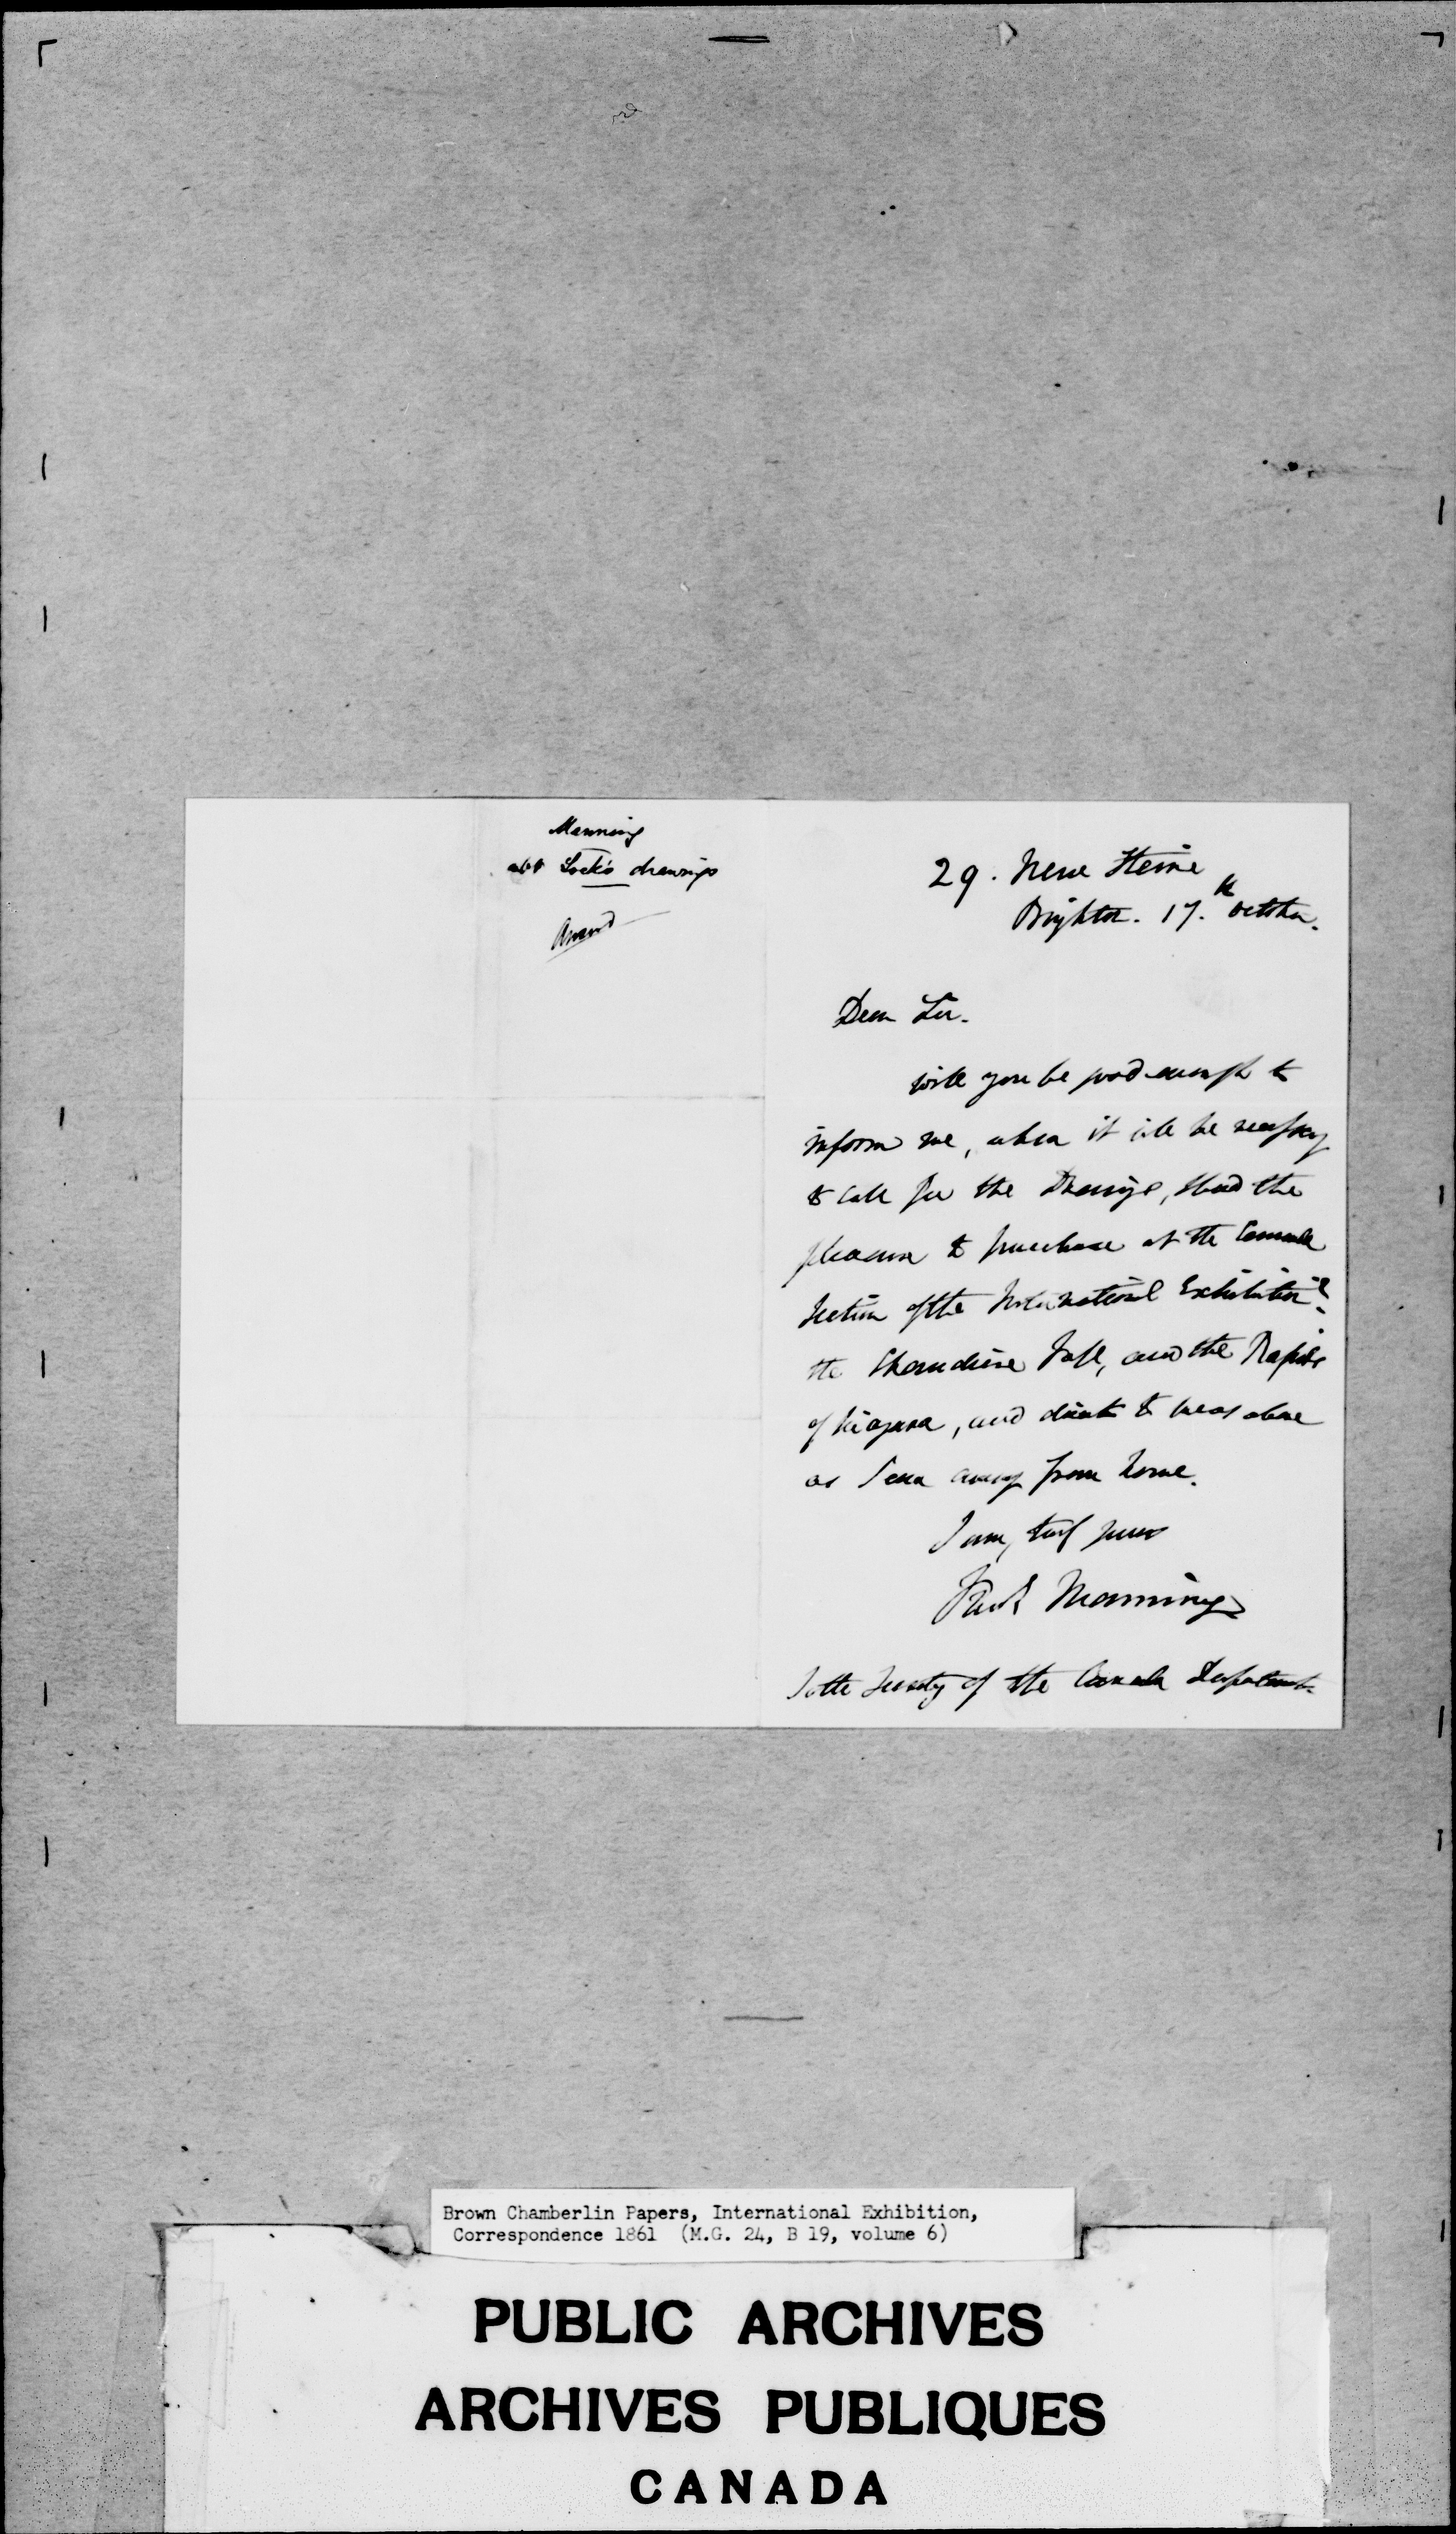 Manning
abt Lock's drawings
Answd
29. New Steine
Brighton. 17.th October.
Dear Sir.
Will you be good enough to
inform me, when it will be necessary
to call for the Drawings, I had the
pleasure to purchase at the Canada
Section of the International Exhibition
the Chaudiere Fall, and the Rapids
of Niagara, and direct to me as above
as I am away from home.
I am, truly yours
Manning
To the Secrety of the Canada Department
Brown Chamberlin Papers, International Exhibition,
Correspondence 1861 (M.G. 24, B 19, volume 6)
PUBLIC ARCHIVES
ARCHIVES PUBLIQUES
CANADA